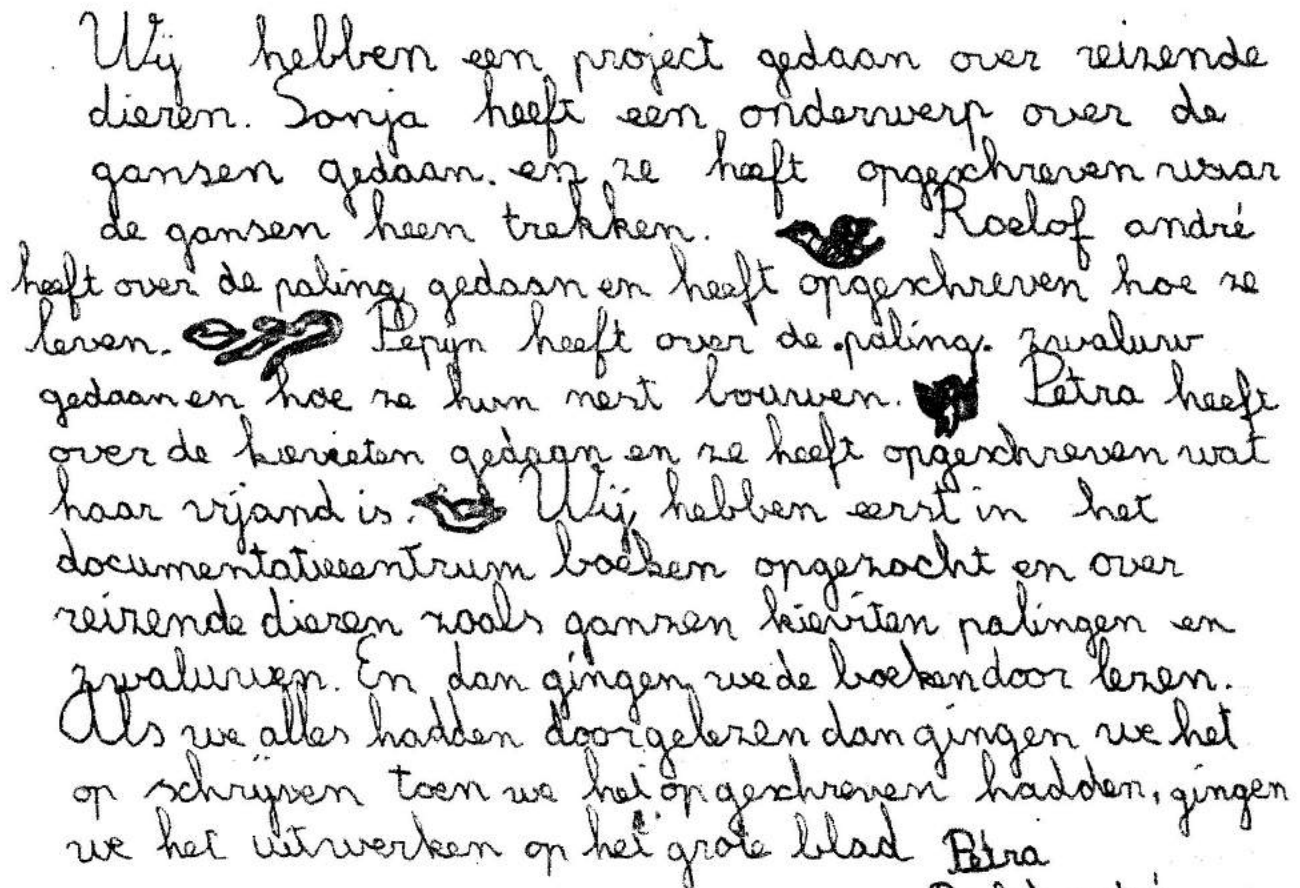 Wij hebben een project gedaan over reizende
dieren. Sonja heeft een onderwerp over de
gansen gedaan. en ze heeft opgeschreven waar
de gansen heen trekken. Roelof andré
heeft over de paling gedaan en heeft opgeschreven hoe ze
leven. Pepijn heeft over de .paling. zwaluw
gedaan en hoe ze hun nest bouwen. Petra heeft
over de kievieten gedaan en ze heeft opgeschreven wat
haar vijand is. Wij hebben eerst in het
documentatiecentrum boeken opgezocht en over
reizende dieren zoals ganzen kieviten palingen en
zwaluwen. En dan gingen we de boeken door lezen.
Als we alles hadden doorgelezen dan gingen we het
op schrijven toen we het opgeschreven hadden, gingen
we het uitwerken op het grote blad Petra